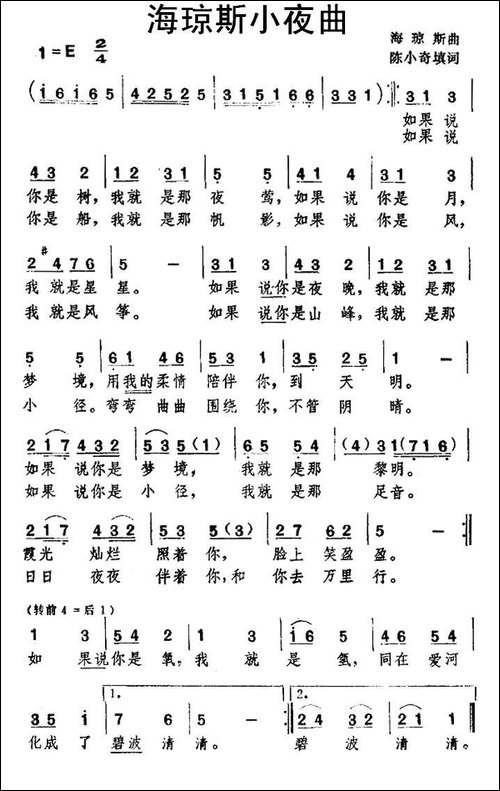 海琼斯小夜曲
1=E 2/4
海 琼 斯曲
陈小奇填词
(i6i65 | 42525 | 315166 | 331) :‖: 31 3
如果 说
如果 说
43 2 | 12 31 | 5 5 | 51 4 | 31 3
你是 树,我就 是那 夜 莺,如果 说 你是 月,
你是 船,我就 是那 帆 影,如果 说 你是 风,
2 #4 76 | 5 - | 31 3 | 43 2 | 12 31
我 就是 星 星。 如果 说你是夜 晚,我就 是那
我 就是 风 筝。 如果 说你是山 峰,我就 是那
5 5 | 61 46 | 53 1 | 35 25 | 1 -
梦 境,用我的柔情 陪伴 你,到 天 明。
小 径。弯弯 曲曲 围绕 你,不管 阴 晴。
217 432 | 535(1) | 65 54 | (4)31(716)
如果 说你是 梦 境, 我就 是那 黎明。
如果 说你是 小 径, 我就 是那 足音。
217 432 | 53 5(3) | 42 52 | 5 - :‖
霞光 灿烂 照着 你, 脸上 笑盈 盈。
日日 夜夜 伴着 你,和 你去 万里 行。
(转前4=后1)
1 3 | 54 2 | 1 3 | i6 5 | 46 54
如 果说你是 氧,我 就 是 氢,同在 爱河
1. 2.
35 i | 7 6 | 5 - :‖ 24 32 | 21 1 ‖
化成 了 碧波 清 清。 碧 波 清 清。